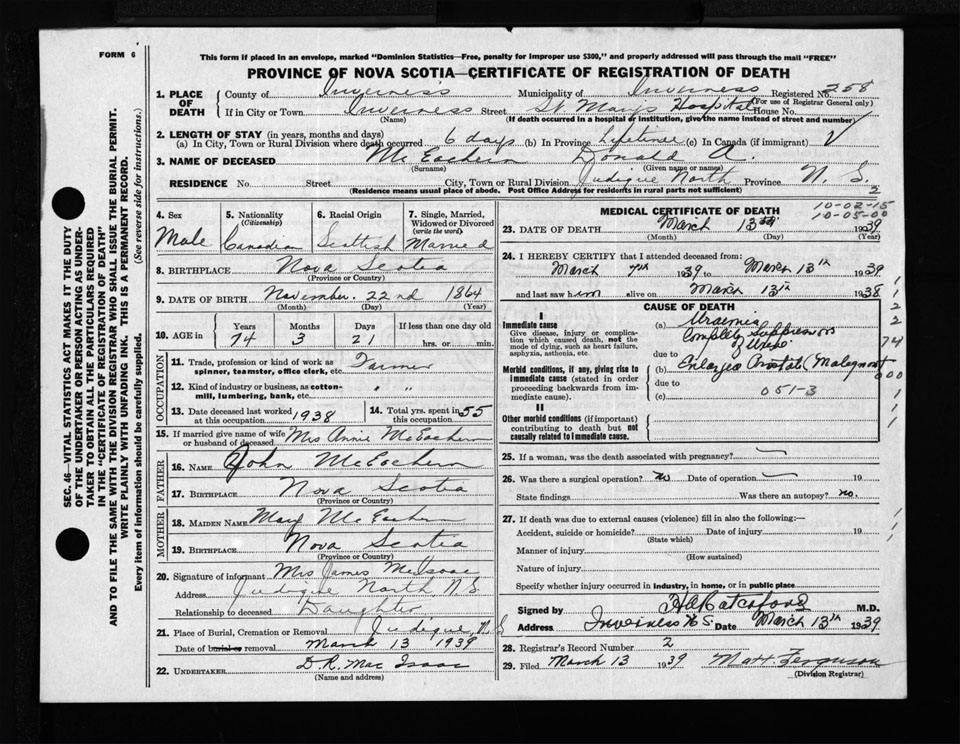 FORM 6
This form if placed in an envelope, marked "Dominion Statistics—Free, penalty for improper use $300," and properly addressed will pass through the mail "FREE"
PROVINCE OF NOVA SCOTIA—CERTIFICATE OF REGISTRATION OF DEATH
SEC. 46—VITAL STATISTICS ACT MAKES IT THE DUTY
OF THE UNDERTAKER OR PERSON ACTING AS UNDER-
TAKER TO OBTAIN ALL THE PARTICULARS REQUIRED
IN THE "CERTIFICATE OF REGISTRATION OF DEATH"
AND TO FILE THE SAME WITH THE DIVISION REGISTRAR WHO SHALL ISSUE THE BURIAL PERMIT.
WRITE PLAINLY WITH UNFADING INK. THIS IS A PERMANENT RECORD.
Every item of information should be carefully supplied. (See reverse side for instructions.)
1. PLACE OF DEATH County of Inverness Municipality of Inverness Registered No. 258
(For use of Registrar General only)
If in City or Town Inverness Street St. Mary's Hospital House No.
(Name) (If death occurred in a hospital or institution, give the name instead of street and number)
2. LENGTH OF STAY (in years, months and days)
(a) In City, Town or Rural Division where death occurred 6 days (b) In Province Lifetime (c) In Canada (if immigrant)
3. NAME OF DECEASED McEachern Donald A.
(Surname) (Given name or names)
RESIDENCE No. Street City, Town or Rural Division Judique North Province N. S.
(Residence means usual place of abode. Post Office Address for residents in rural parts not sufficient) 2
4. Sex Male
5. Nationality (Citizenship) Canadian
6. Racial Origin Scottish
7. Single, Married, Widowed or Divorced (write the word) Married
8. BIRTHPLACE Nova Scotia
(Province or Country)
9. DATE OF BIRTH November 22nd 1864
(Month) (Day) (Year)
10. AGE in Years 74 Months 3 Days 21 If less than one day old hrs. or min.
OCCUPATION
11. Trade, profession or kind of work as spinner, teamster, office clerk, etc. Farmer
12. Kind of industry or business, as cotton-mill, lumbering, bank, etc. " "
13. Date deceased last worked at this occupation 1938
14. Total yrs. spent in this occupation 55
15. If married give name of wife or husband of deceased Mrs Annie McEachern
FATHER
16. NAME John McEachern
17. BIRTHPLACE Nova Scotia
(Province or Country)
MOTHER
18. MAIDEN NAME Mary McEachern
19. BIRTHPLACE Nova Scotia
(Province or Country)
20. Signature of informant Mrs James McIsaac
Address Judique North N.S.
Relationship to deceased Daughter
21. Place of Burial, Cremation or Removal Judique, N.S.
Date of burial or removal March 13 1939
22. UNDERTAKER D R. Mac Isaac
(Name and address)
MEDICAL CERTIFICATE OF DEATH
10-02-15
10-05-00
23. DATE OF DEATH March 13th 1939
(Month) (Day) (Year)
24. I HEREBY CERTIFY that I attended deceased from:
March 7th 1939 to March 13th 1939
and last saw him alive on March 13th 1938
CAUSE OF DEATH
I
Immediate cause
Give disease, injury or complication which caused death, not the mode of dying, such as heart failure, asphyxia, asthenia, etc
(a) Uraemia
Complete Suppression of Urine
74
due to
Morbid conditions, if any, giving rise to immediate cause (stated in order proceeding backwards from immediate cause).
(b) Enlarged Prostate (Malignant)
000
due to
(c) 051-3
II
Other morbid conditions (if important) contributing to death but not causally related to immediate cause.
25. If a woman, was the death associated with pregnancy?
26. Was there a surgical operation? No Date of operation 19
State findings Was there an autopsy? no.
27. If death was due to external causes (violence) fill in also the following:—
Accident, suicide or homicide? Date of injury 19
(State which)
Manner of injury
(How sustained)
Nature of injury
Specify whether injury occurred in industry, in home, or in public place
Signed by M.D.
Address Inverness N.S. Date March 13th 1939
28. Registrar's Record Number 2
29. Filed March 13 1939 Matt. Ferguson
(Division Registrar)